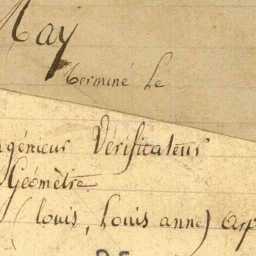 May
terminé le
ngénieur Vérificateur
Géomètre
(louis, louis anne) arp